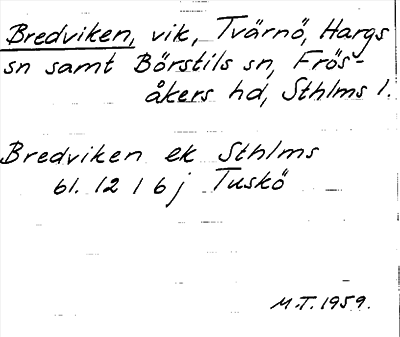 Bredviken, vik, Tvärnö, Hargs
sn samt Börstils sn, Frös-
åkers hd, Sthlms l.
Bredviken ek Sthlms
bl. 12 I 6 j Tuskö
M.T. 1959.